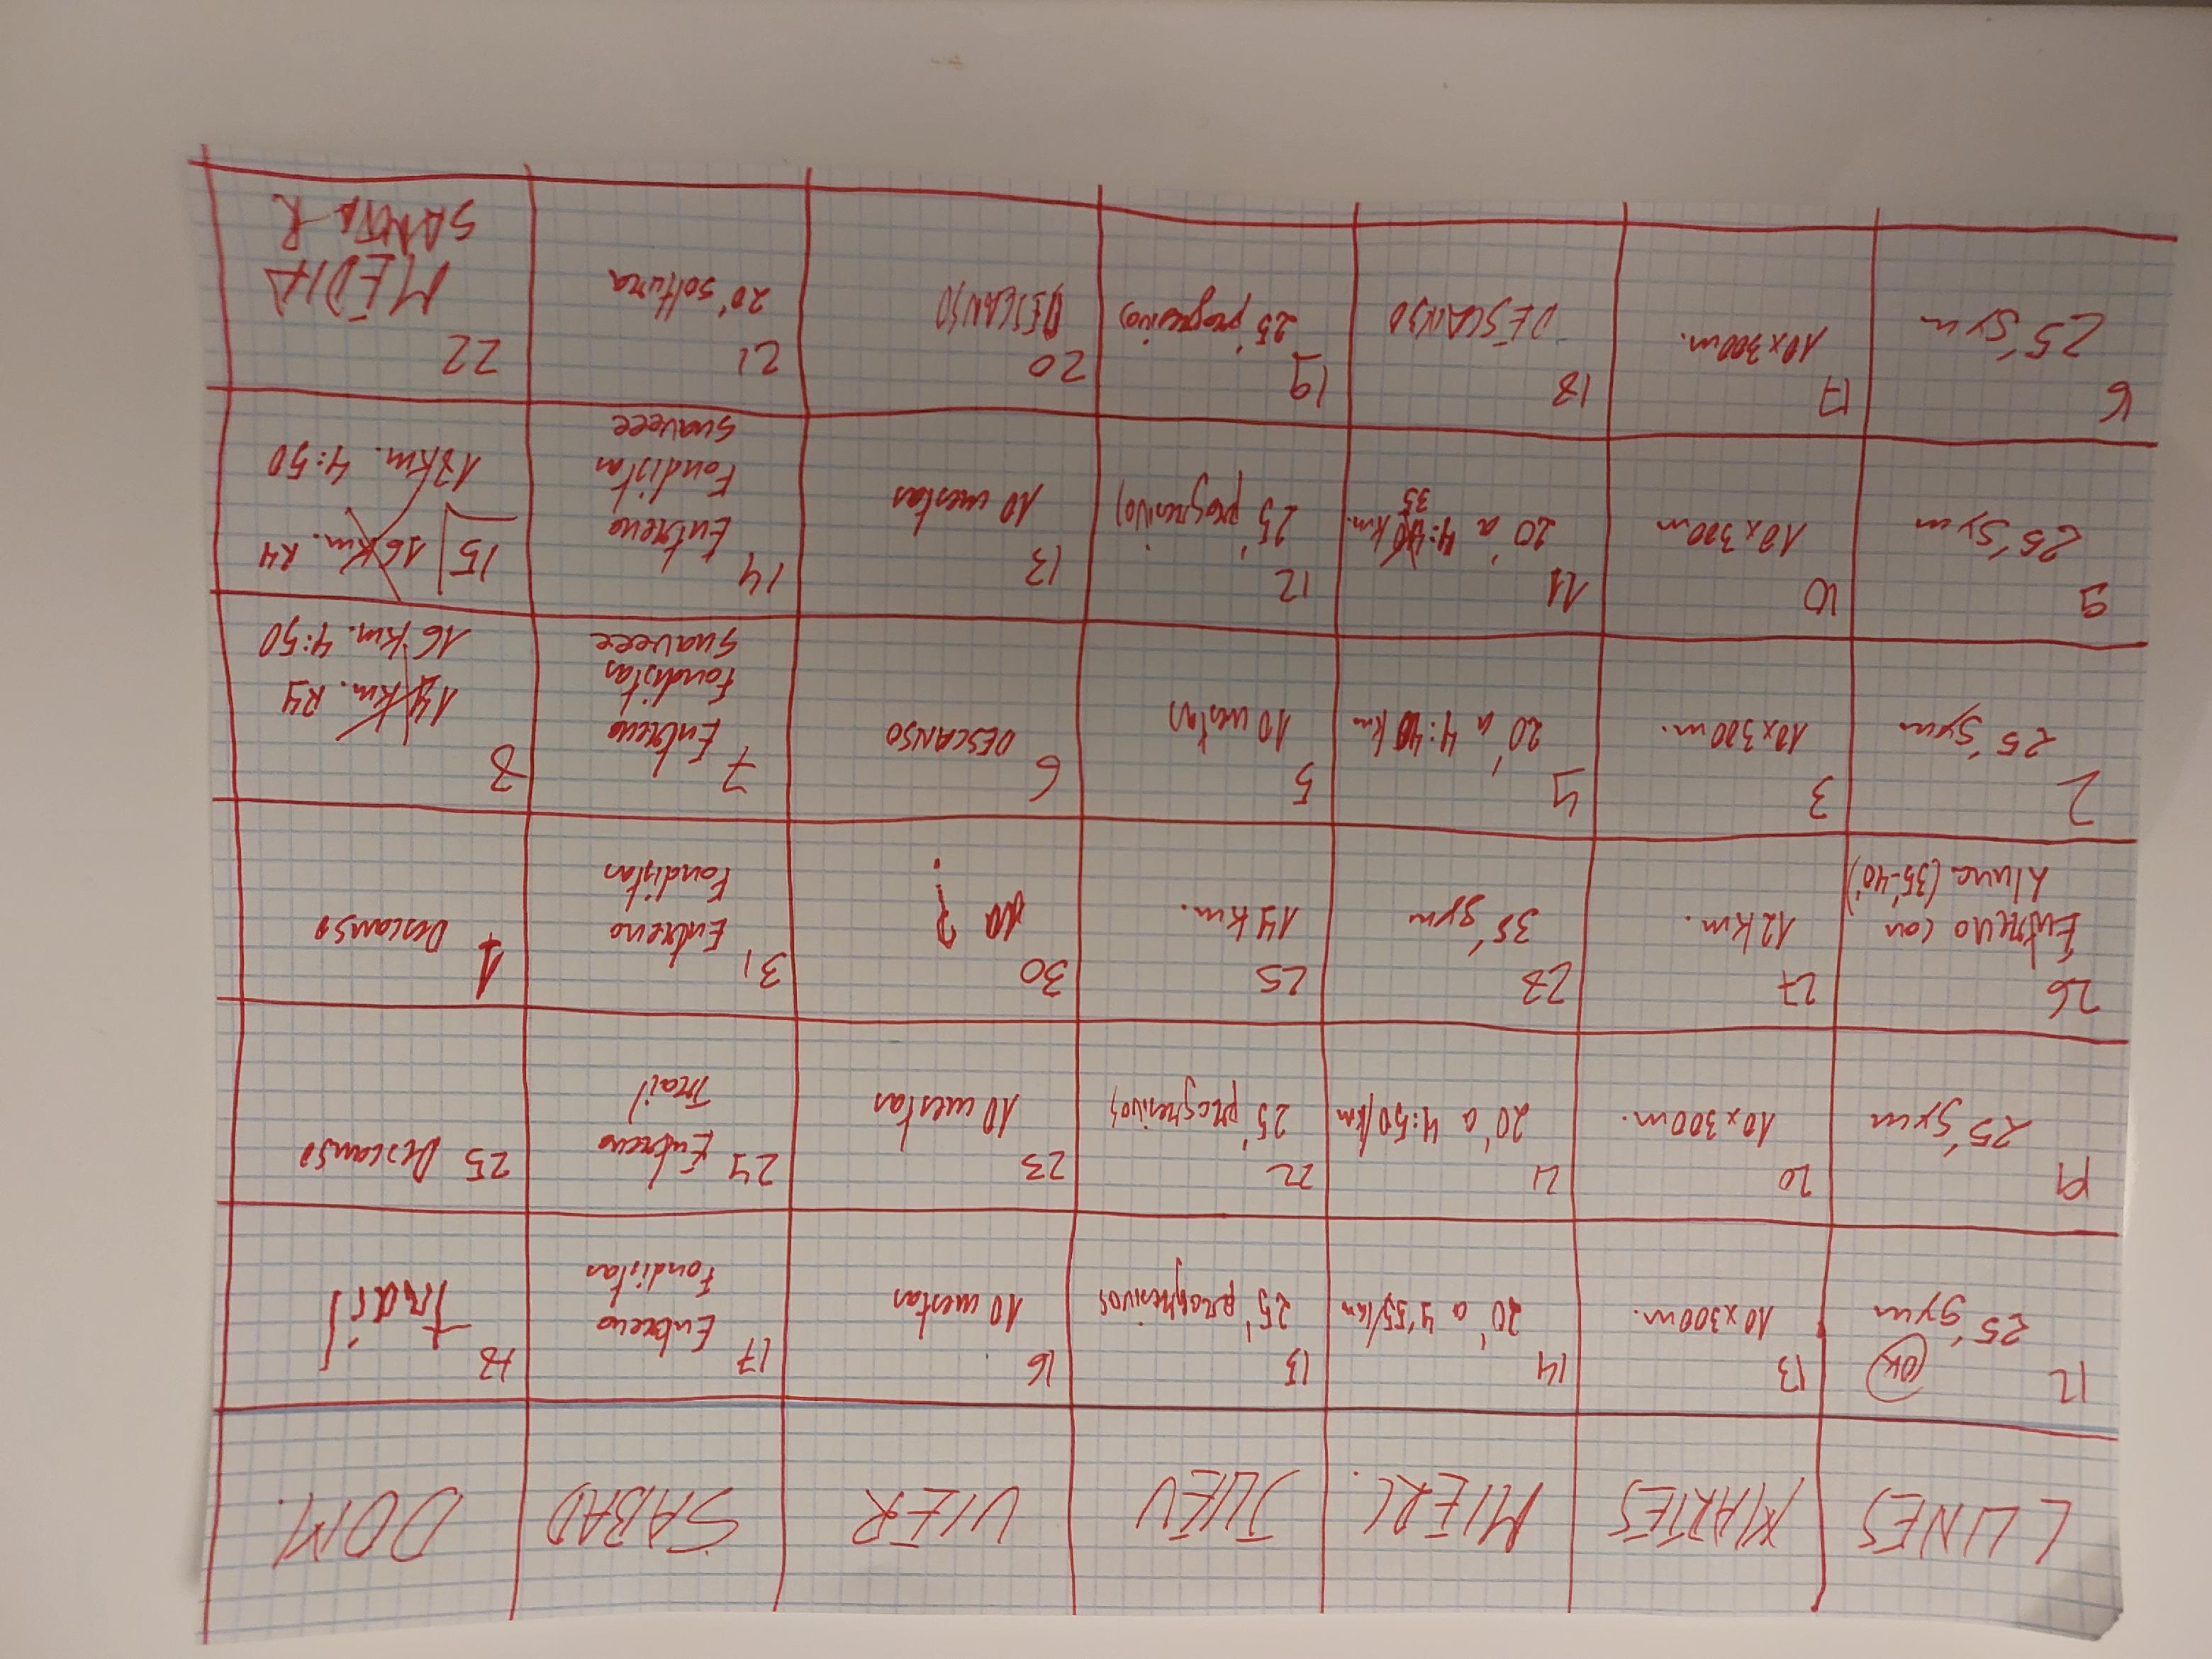 LUNES MARTES MIERC. JUEV VIER SABAD DOM.
12 OK
25' gym
13
10x300m.
14
20' a 4'55/km
15
25' progresivos
16
10 cuestas
17
Entreno
Fondistas
18
trail
19
25' gym
20
10x300m.
21
20' a 4:50/km
22
25' progresivos
23
10 cuestas
24 Entreno
Trail
25 Descanso
26
Entreno con
(35'-40')
27
12 km.
28
35' gym
25
14 km.
30
?
31
Entreno
Fondistas
1 Descanso
2
25' gym
3
10x300m.
4
20' a 4:40 km
5
10 cuestas
6
DESCANSO
7 Entreno
Fondistas
Suaveee
8
14 km. R4
16 km. 4:50
9
25' gym
10
10x300m
11
20' a 4:40 km.
35
12
25' progresivos
13
10 cuestas
14 Entreno
Fondistas
Suaveee
15 16 km. R4
18 km. 4:50
16
25' gym
17
10x300m.
18
DESCANSO
19
25' progresivos
20
DESCANSO
21
20' soltura
22
MEDIA
SANTA R